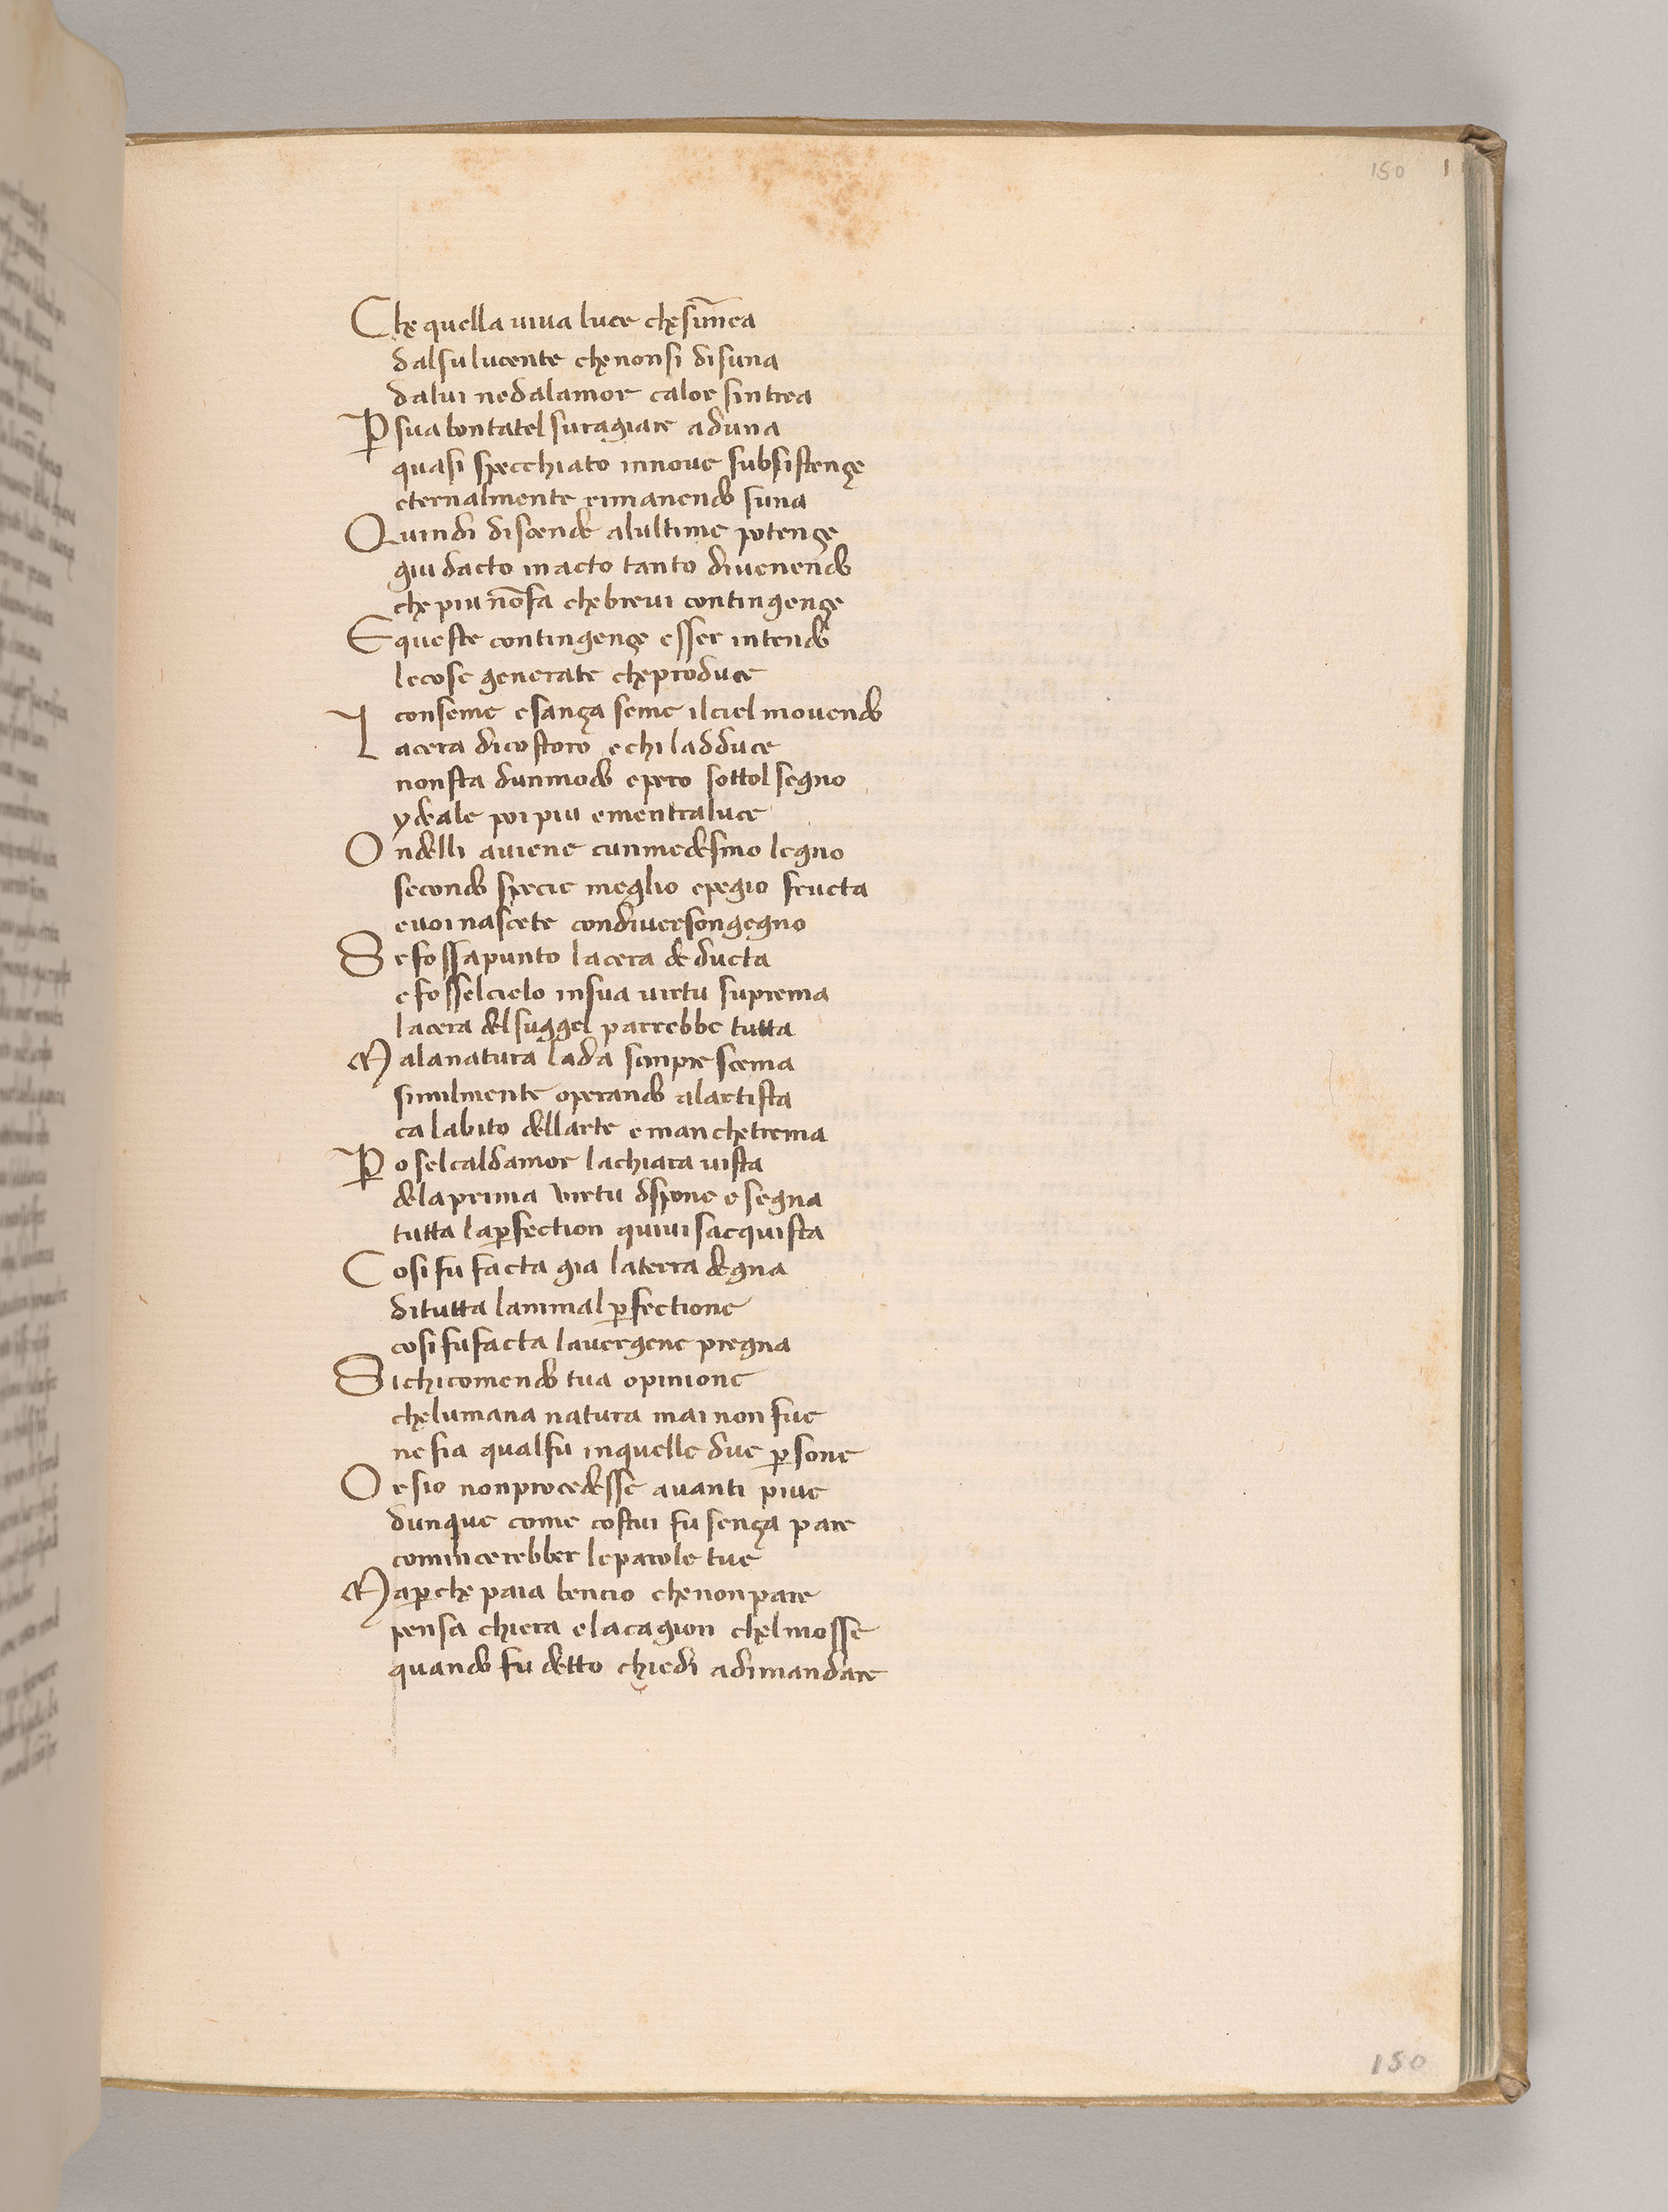 150
Che quella viva luce che sim̄ea
dalsu lucente che nonsi disuna
dalui nedalamor calor sintrea
P̲ sua bontatel suragiare aduna
quasi specchiato innove subsistençe
eternalmente rimanendo suna
Quindi discende alultime potençe
giu dacto in acto tanto divenendo
che piu nōfa che brevi contingençe
E queste contingençe esser intendo
lecose generate cheproduce
conseme esança seme ilciel movendo
Lacera dicostoro echi ladduce
nonsta dunmodo epero sottol segno
ydeale poi piu ementraluce
Ondelli aviene cunmedesmo legno
secondo specie meglio epegio fructa
evoi nascete condiversongegno
Se fossapunto lacera deducta
efosselcielo insua virtu suprema
lacera del suggel parrebbe tutta
Malanatura lada sempre scema
similmente operando alartista
calabito dellarte eman chetrema
P̲o selcaldamor lachiara vista
delaprima virtu dispone esegna
tutta lap̲fection quivi sacquista
Cosi fu facta gia laterra degna
ditutta lanimal p̲fectione
cosi fu facta lavergene pregna
Sichicomendo tua opinione
chelumana natura mai non fue
ne fia qualfu inquelle due p̲sone
Or sio nonprocedesse avanti piue
dunque come costui fu sença pare
comincerebber leparole tue
Map̲che paia bencio che nonpare
pensa chiera elacagion chelmosse
quando fu detto chiedi adimandare
150